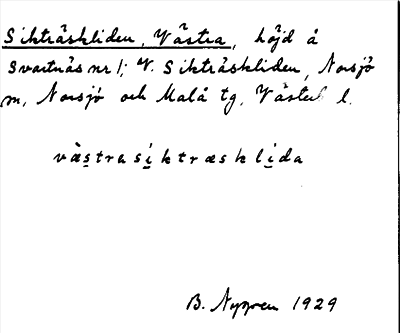 Sikträskliden, Västra, höjd å
Svartnäs nr 1; V. Sikträskliden, Norsjö
m, Norsjö och Malå tg, Västerb l.
västrasiktræsklida
B. Nygren 1929